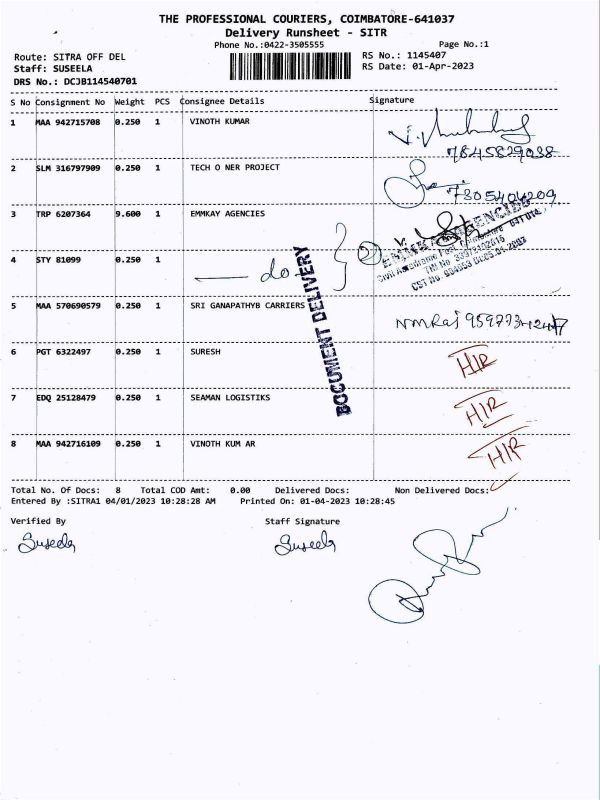 THE PROFESSIONAL COURIERS, COIMBATORE-641037
Delivery Runsheet - SITR
Phone No.:0422-3505555 Page No.:1
Route: SITRA OFF DEL RS No.: 1145407
Staff: SUSEELA RS Date: 01-Apr-2023
DRS No.: DCJB114540701
S No Consignment No Weight PCS Consignee Details Signature
1 MAA 942715708 0.250 1 VINOTH KUMAR
7845829038
2 SLM 316797909 0.250 1 TECH O NER PROJECT
7305404209
3 TRP 6207364 9.600 1 EMMKAY AGENCIES
4 STY 81099 0.250 1 do
DOCUMENT DELIVERY
5 MAA 570690579 0.250 1 SRI GANAPATHYB CARRIERS
6 PGT 6322497 0.250 1 SURESH H/R
7 EDQ 25128479 0.250 1 SEAMAN LOGISTIKS H/R
8 MAA 942716109 0.250 1 VINOTH KUM AR H/R
Total No. Of Docs: 8 Total COD Amt: 0.00 Delivered Docs: Non Delivered Docs:
Entered By :SITRA1 04/01/2023 10:28:28 AM Printed On: 01-04-2023 10:28:45
Verified By Staff Signature
Suseela Suseela